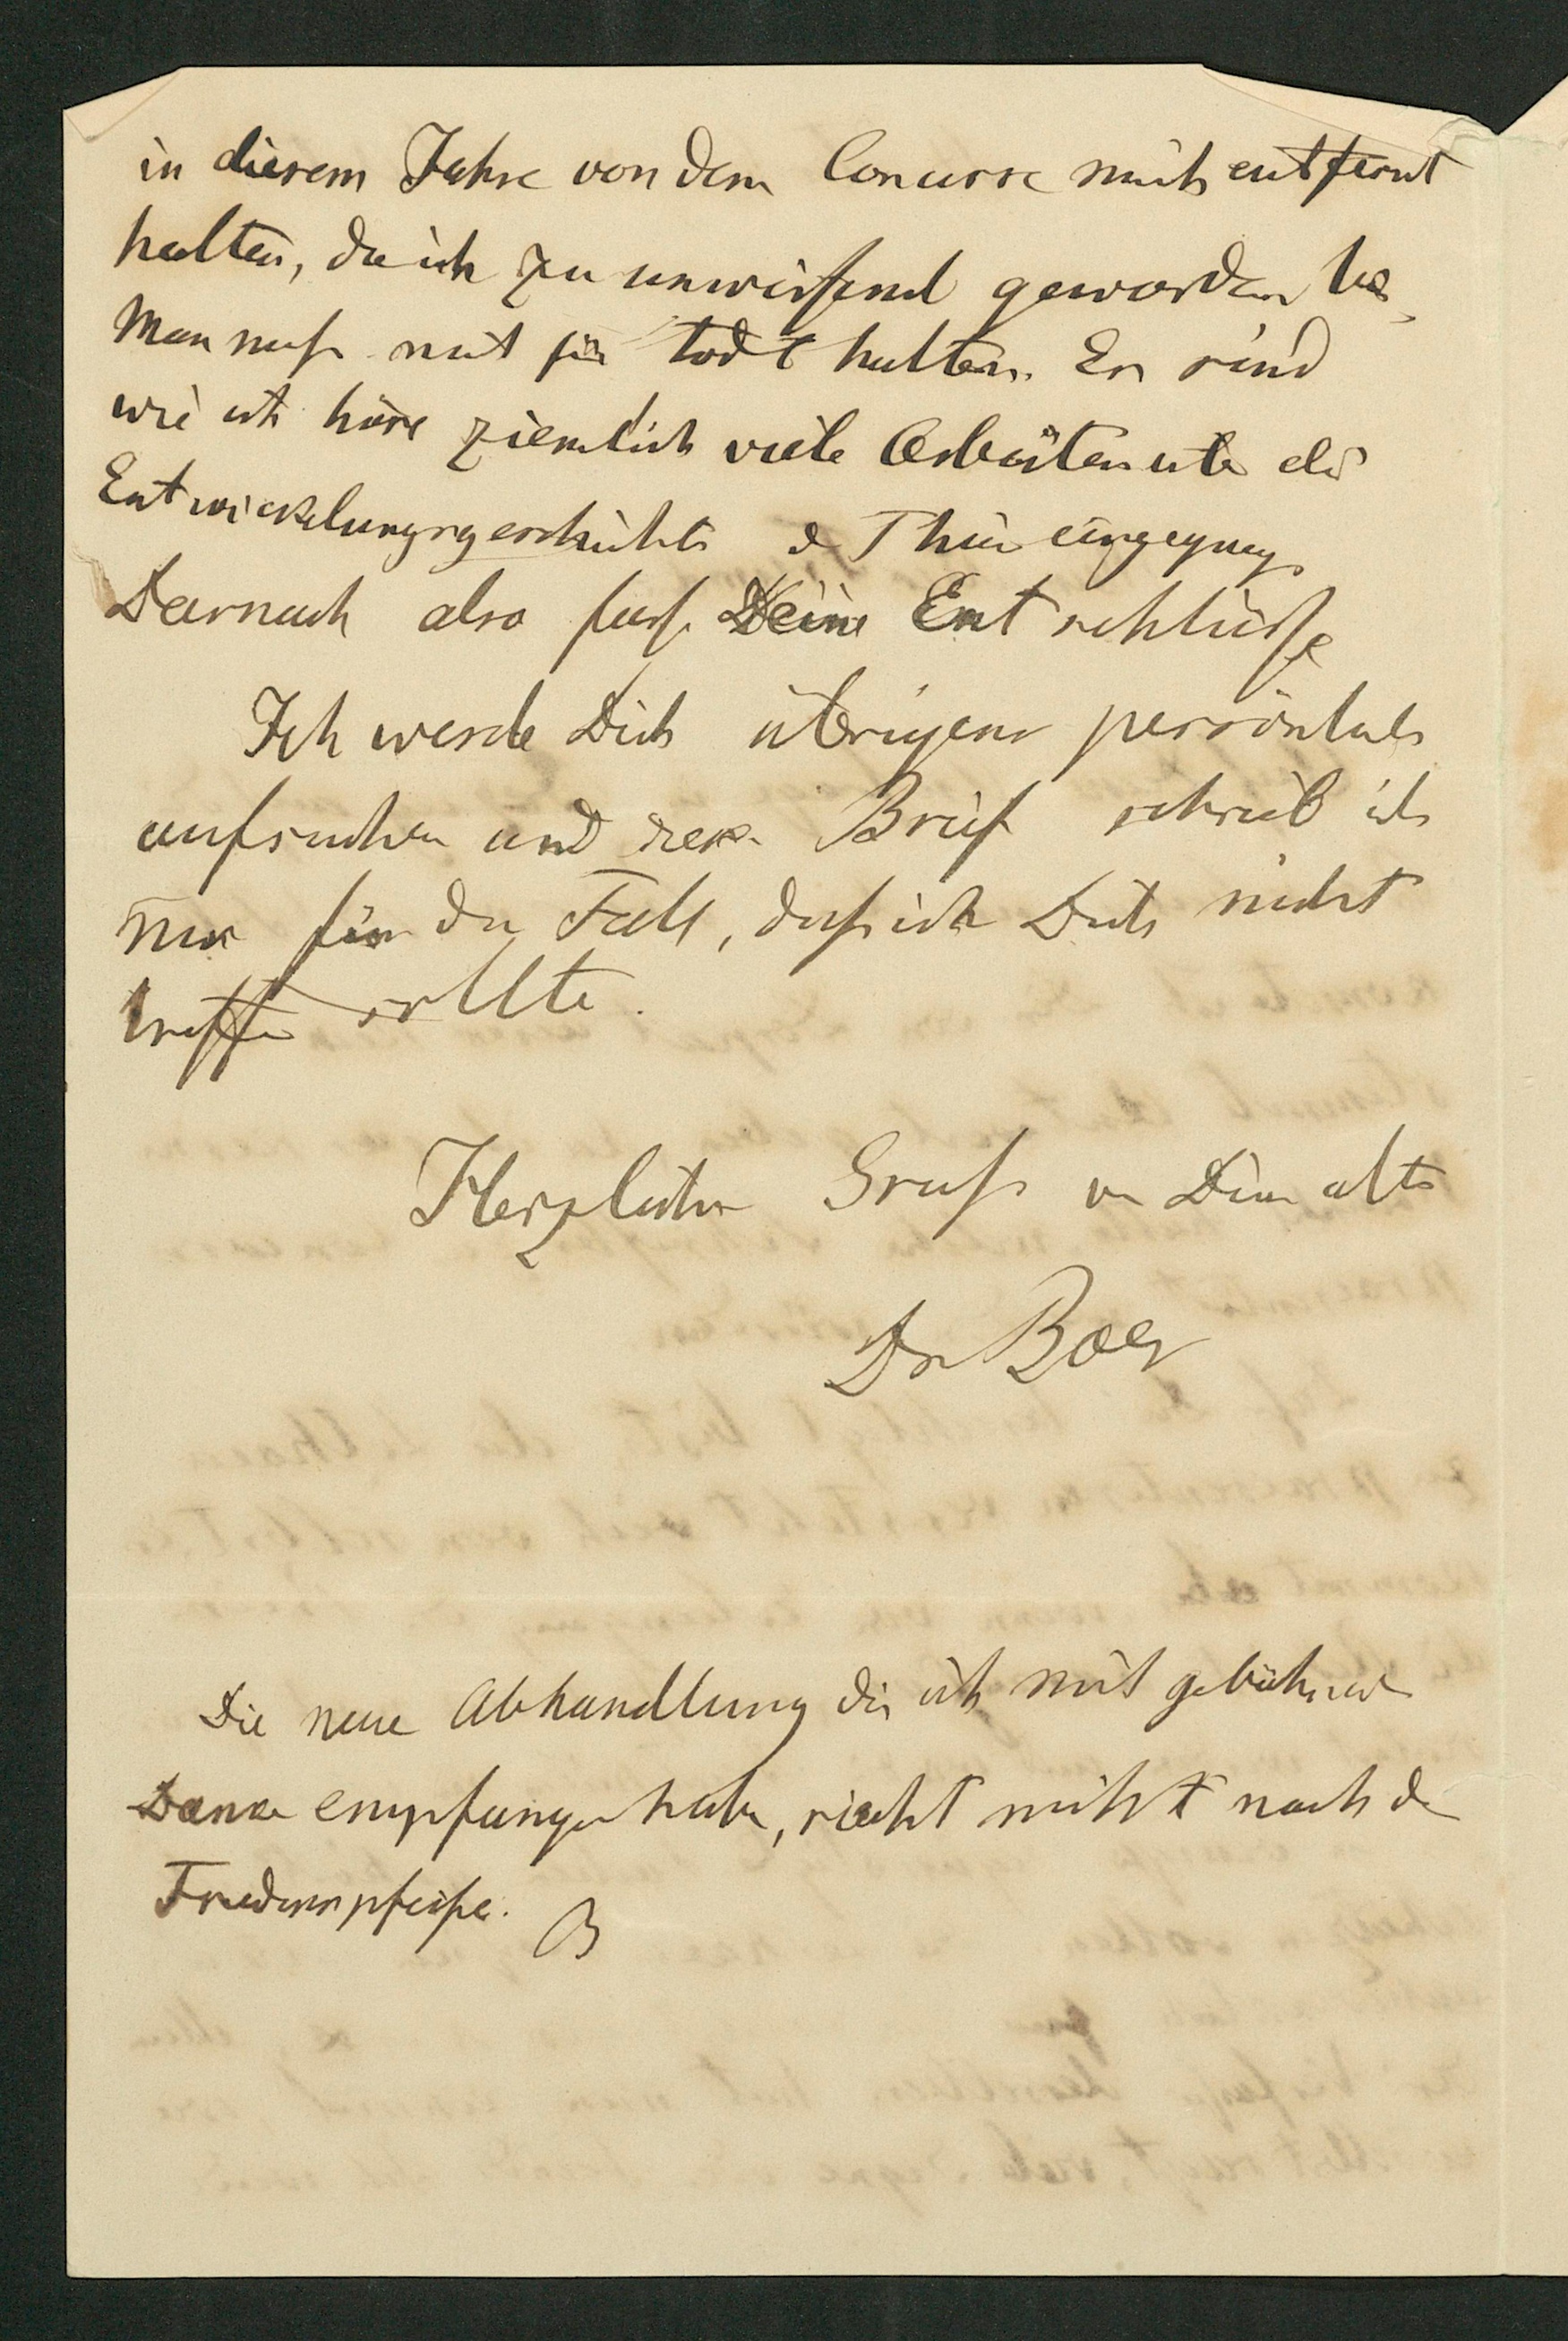 in diesem Jahre von dem Concurse mich entfernt
halten, da ich zu unwissend geworden bin
Man muß mich für todt halten. Es sind
wie ich höre ziemlich viele Arbeiten über die
Entwickelungsgeschichte d Thiere eingegangen
Darnach also fass Deine Entschlüsse
Ich werde Dich übrigens persönlich
aufsuchen und Brief schrieb ich
nur für den Fall, daß ich Dich nicht
treffen sollte.
Herzlichen Gruß von Deinem alten
Dr Baer
Die neue Abhandlung die ich mit gebührend
Danke empfangen habe, riecht nicht nach der
Friedenspfeife. B